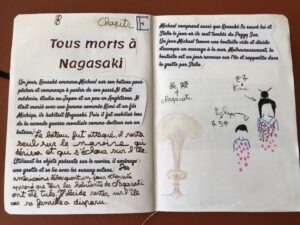 8
Chapitre
Tous morts à
Nagasaki
Un jour, Kensuké emmena Michael sur son bateau pour
pêcher et commença à parler de son passé. Il était
médecin, étudia au Japon et un peu en Angleterre. Il
était marié avec une femme nommée Kimi et un fils
de Michiya. Il habitait Nagasaki. Puis il fut mobilisé lors
de la seconde guerre mondiale comme docteur sur un
bateau.
Le bateau fut attaqué, il resta
seul sur le navire qui
dériva et qui s'échoua sur l'île.
Utilisant les objets présents sur le navire, il aménagea
une grotte et se lie avec les orang outans.
Des
américains débarquèrent un jour et Kensuké
apprend que tous les habitants de Nagasaki
ont été tués. Il décida rester sur l'île
sa famille a disparu.
Michael comprend aussi que Kensuké l'a sauvé lui et
Stella le jour où ils sont tombés du Peggy Sue.
Un jour Michael trouve une bouteille vide et décide
d'envoyer un message à la mer. Malheureusement, la
bouteille est un jour revenue sur l'île et rapportée dans
la grotte par Stella.
Kimi